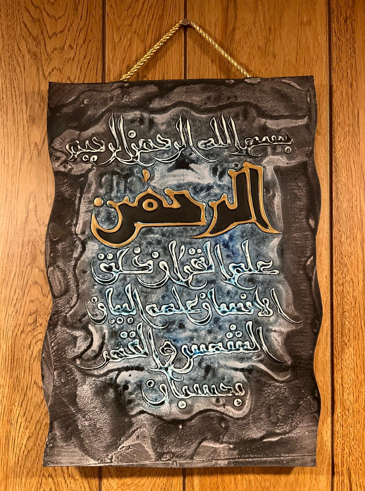 بسم الله الرحمن الرحيم
الرحمن
علم القران خلق
الانسان علمه البيان
الشمس والقمر
بحسبان